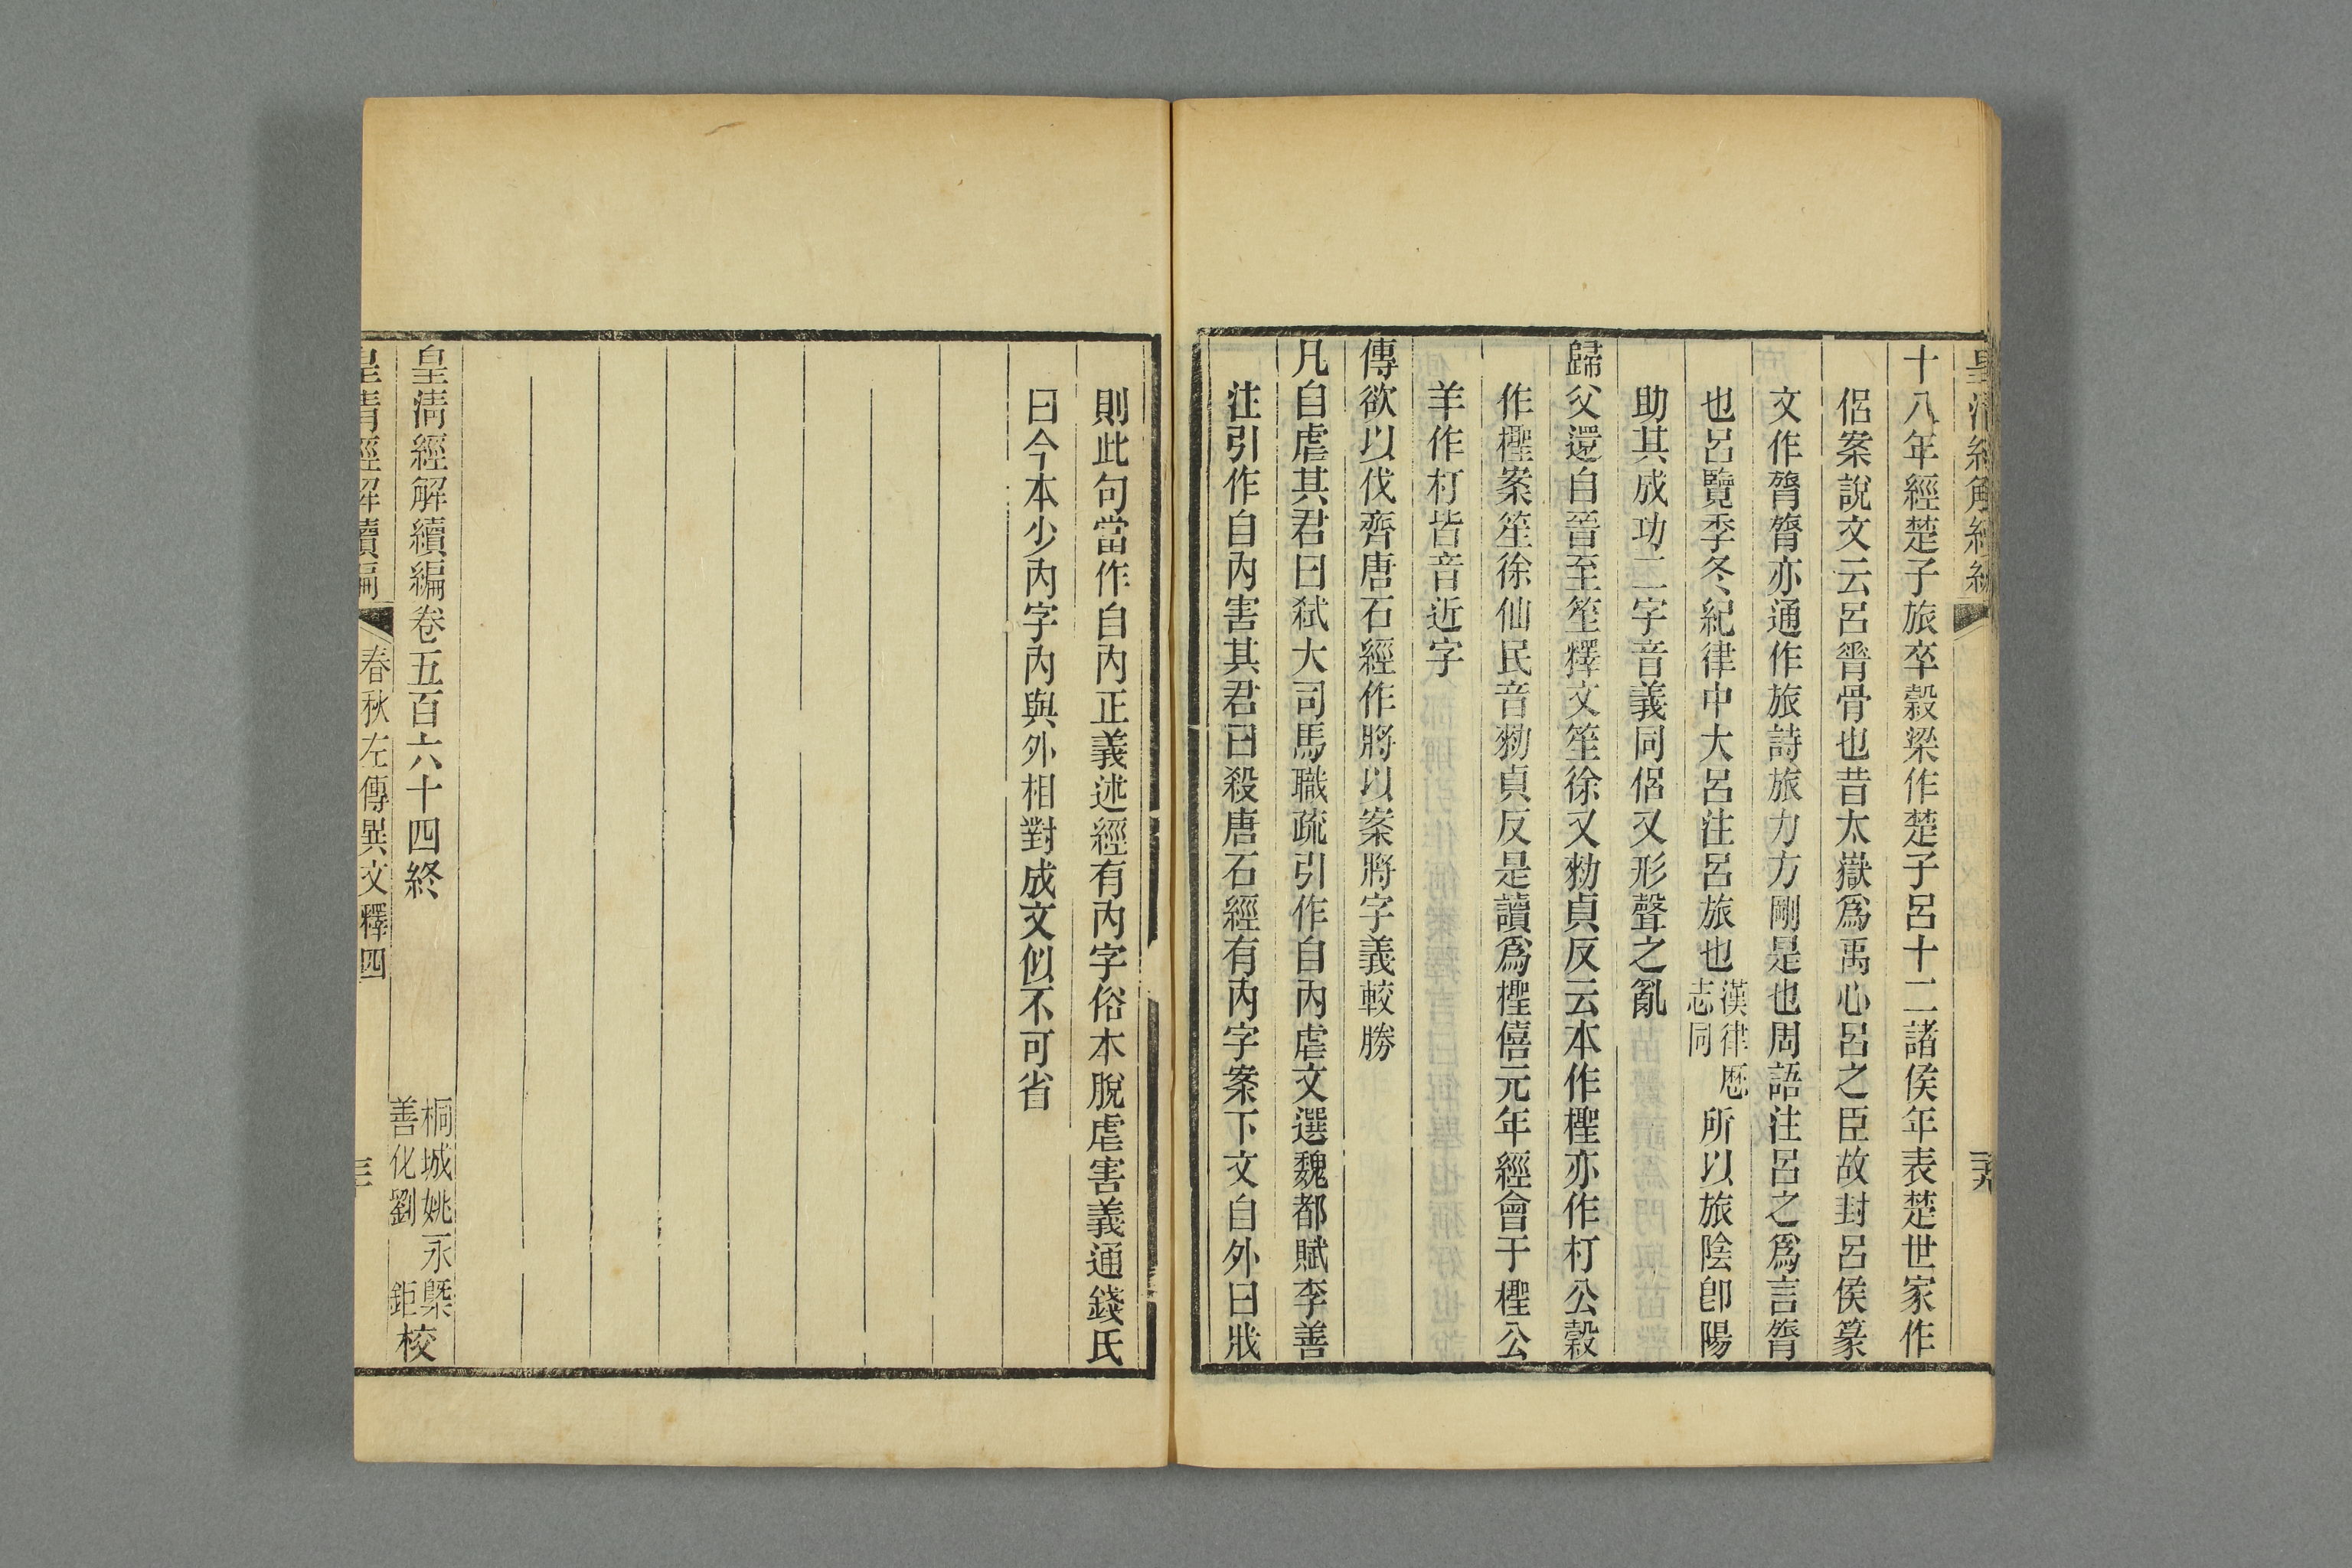 皇清經解續編
十八年經楚子旅卒穀梁作楚子呂十二諸侯年表楚世家作
侶案說文云呂膂骨也昔太嶽為禹心呂之臣故封呂侯篆
文作膂膂亦通作旅詩旅力方剛是也周語注呂之為言膂
也呂覽季冬紀律中大呂注呂旅也漢律厯志同所以旅陰卽陽
助其成功二字音義同侶又形聲之亂
歸父還自晉至笙釋文笙徐又勑貞反云本作檉亦作朾公穀
作檉案笙徐仙民音勑貞反是讀為檉僖元年經會于檉公
羊作朾皆音近字
傳欲以伐齊唐石經作將以案將字義較勝
凡自虐其君曰弒大司馬職疏引作自內虐文選魏都賦李善
注引作自內害其君曰殺唐石經有內字案下文自外曰戕
則此句當作自內正義述經有內字俗本脫虐害義通錢氏
曰今本少內字內與外相對成文似不可省
皇清經解續編卷五百六十四終
桐城姚永㮣
善化劉鉅校
皇清經解續編
春秋左傳異文釋四